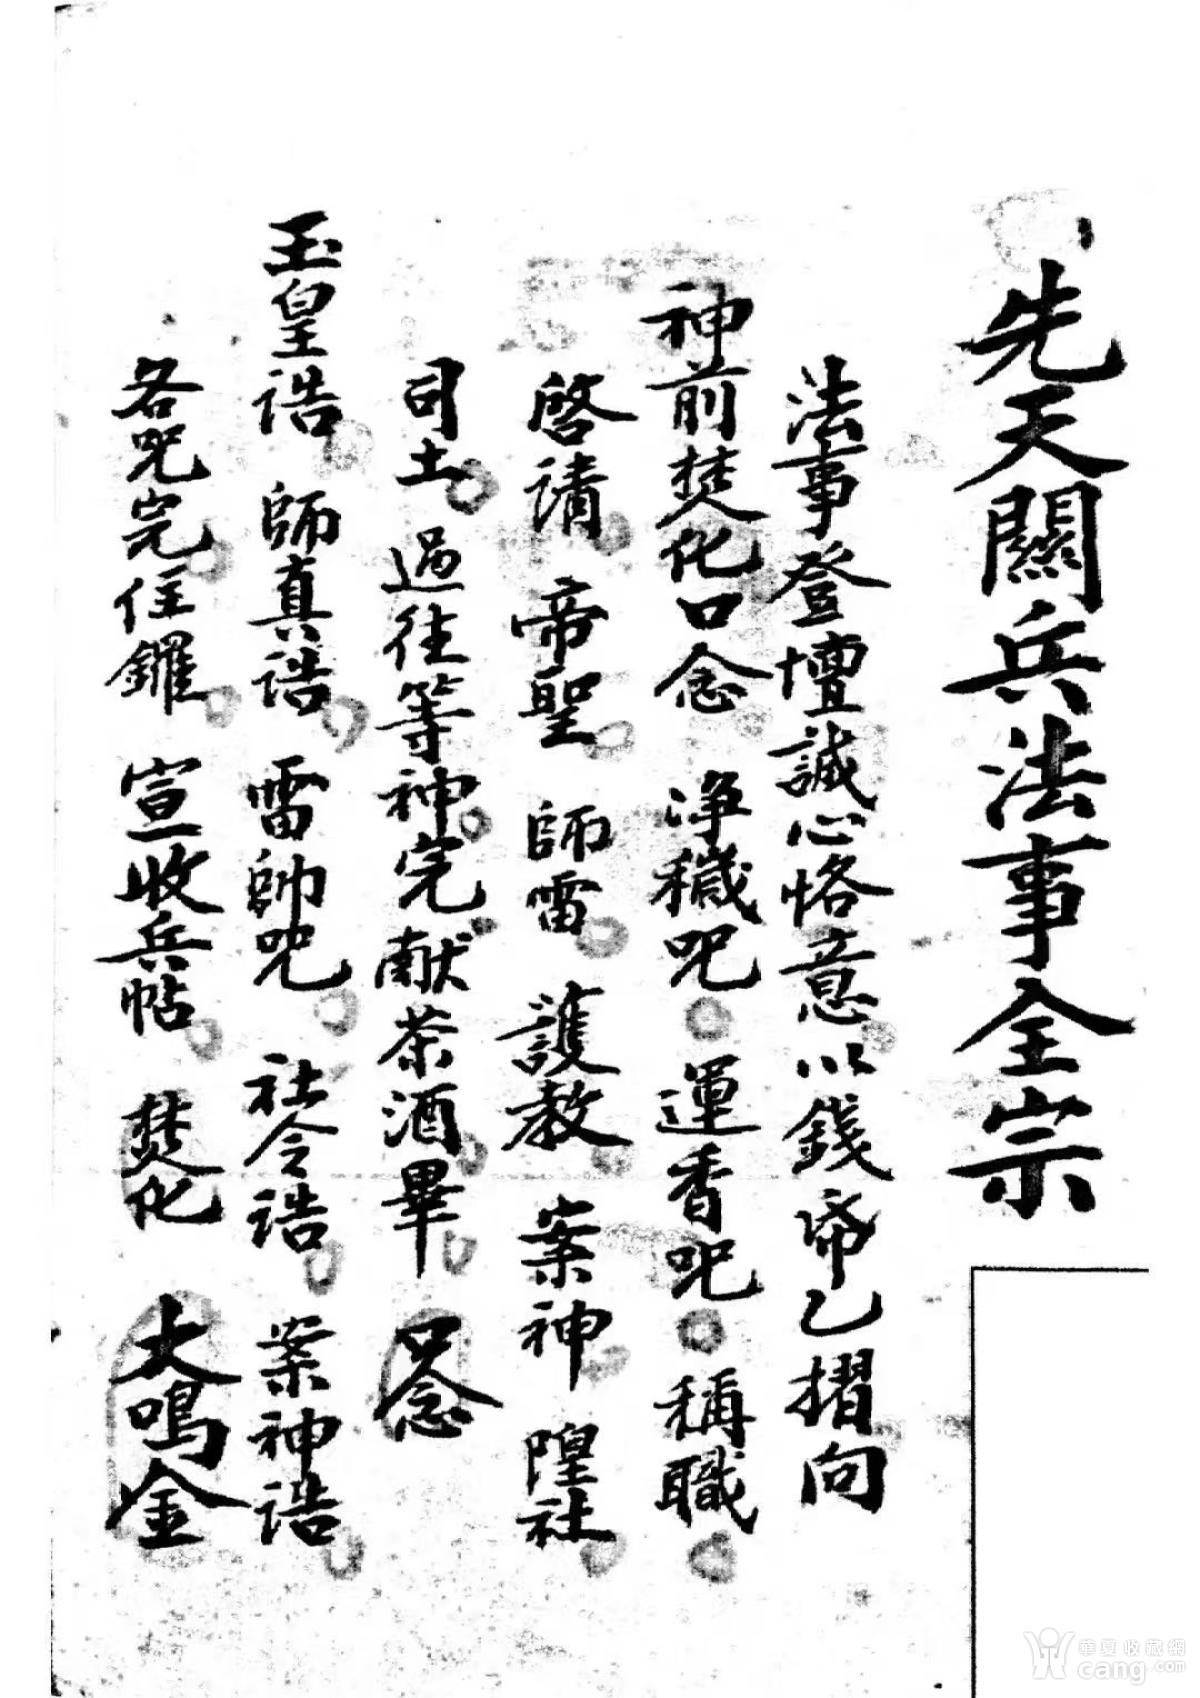 先天關兵法事全宗
法事登壇誠心恪意以錢帋乙摺向
神前焚化口念 净穢咒 運香咒 稱職
啓请 帝聖 師雷 護教 案神 隍社
司土 過往等神完献茶酒畢 口念
玉皇诰 師真诰 雷帥咒 社令诰 案神诰
各咒完住鑼 宣收兵帖 焚化 大鳴金
華夏收藏網
cang.com